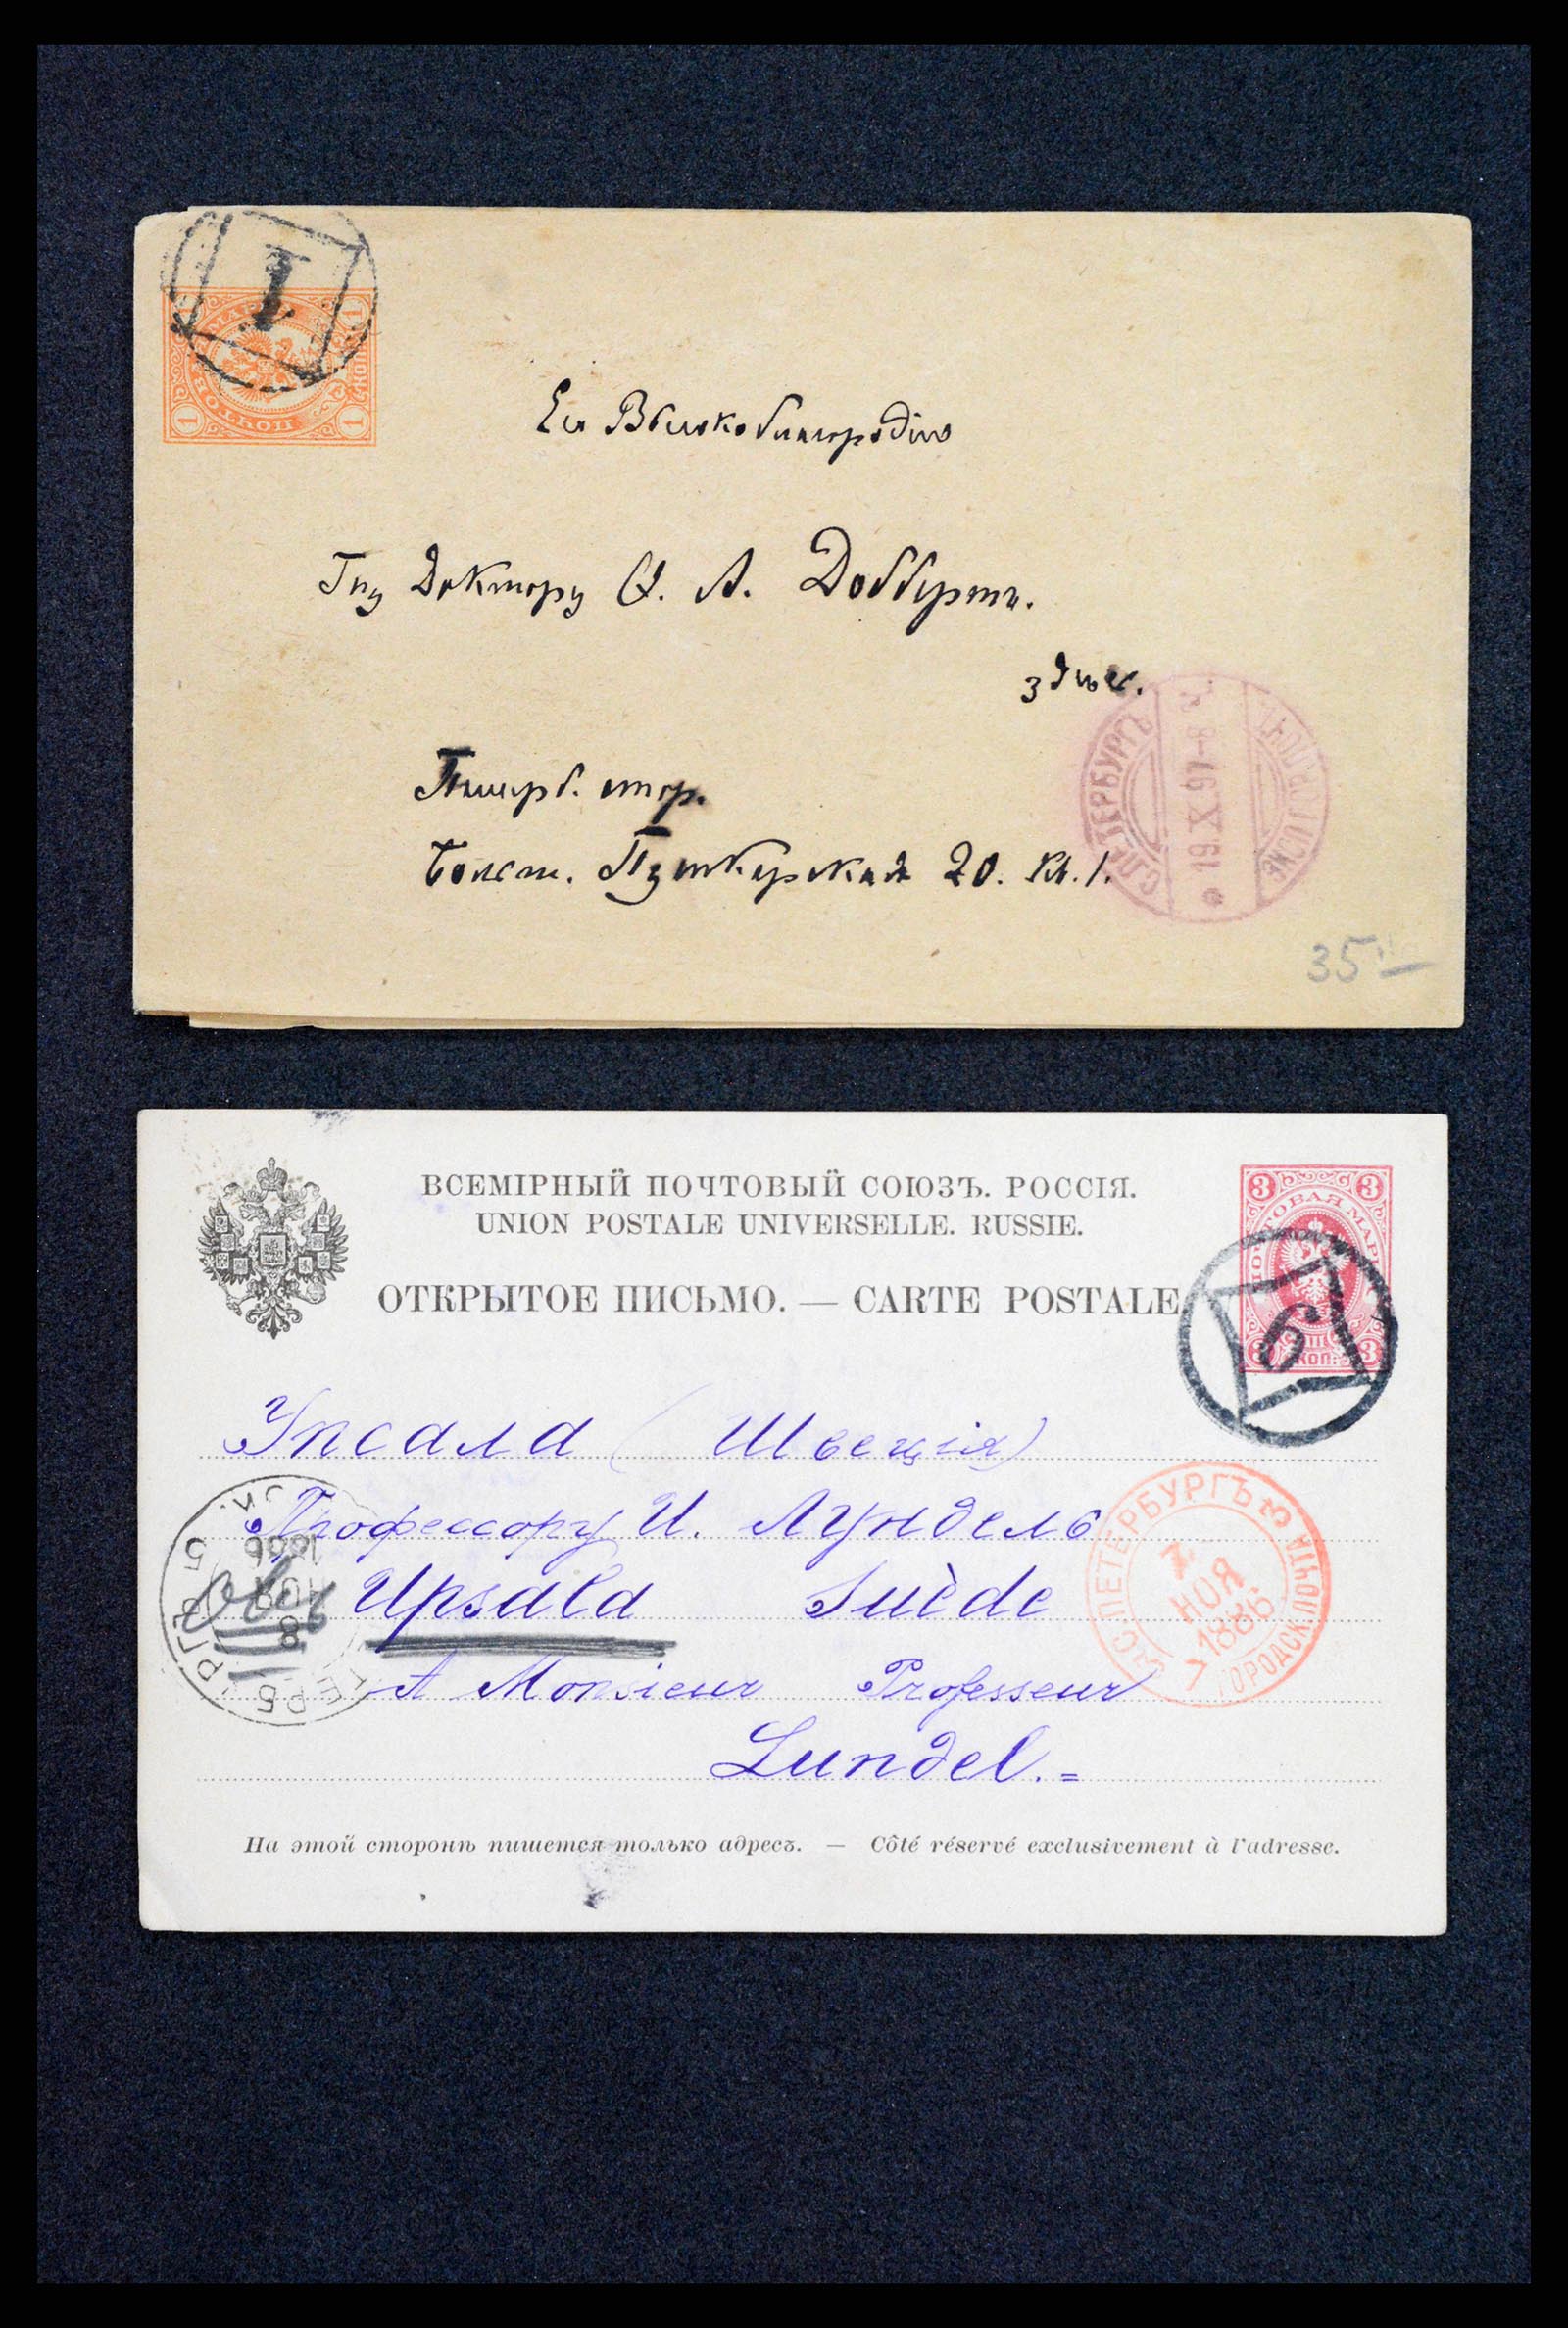 I
ПОЧТОВ. МАРКА
1 КОП.
Ея Высокоблагородію
Гну Доктору Ѳ. А. Доббертъ.
здѣсь.
Петерб. стор.
Больш. Пушкарская 20. кв. 1.
С.ПЕТЕРБУРГЪ
19.X.97-8
35
ВСЕМІРНЫЙ ПОЧТОВЫЙ СОЮЗЪ. РОССІЯ.
UNION POSTALE UNIVERSELLE. RUSSIE.
ОТКРЫТОЕ ПИСЬМО. — CARTE POSTALE
3 3
ПОЧТОВАЯ МАРКА
КОП.
6
Упсала (Швеція)
Профессору И. Лундель
Upsala Suède
A Monsieur Professeur
Lundel. =
С.ПЕТЕРБУРГЪ
7
НОЯ
1886
7 ГОРОДСК. ПОЧТА
8
НОЯ
1886
На этой сторонѣ пишется только адресъ. — Côté réservé exclusivement à l'adresse.